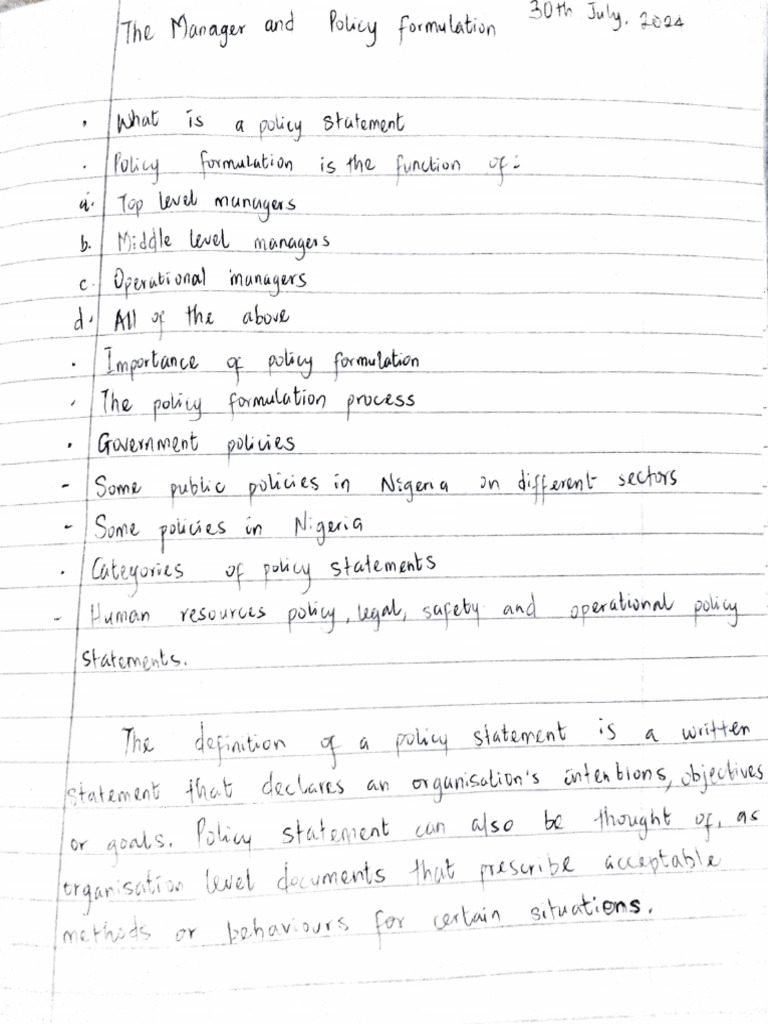 The Manager and Policy formulation 30th July, 2024
. What is a policy statement
. Policy formulation is the function of:
a. Top level managers
b. Middle level managers
c. Operational managers
d. All of the above
. Importance of policy formulation
. The policy formulation process
. Government policies
- Some public policies in Nigeria on different sectors
- Some policies in Nigeria
. Categories of policy statements
- Human resources policy, legal, safety and operational policy
statements.
The definition of a policy statement is a written
statement that declares an organisation's intentions, objectives
or goals. Policy statement can also be thought of, as
organisation level documents that prescribe acceptable
methods or behaviours for certain situations.